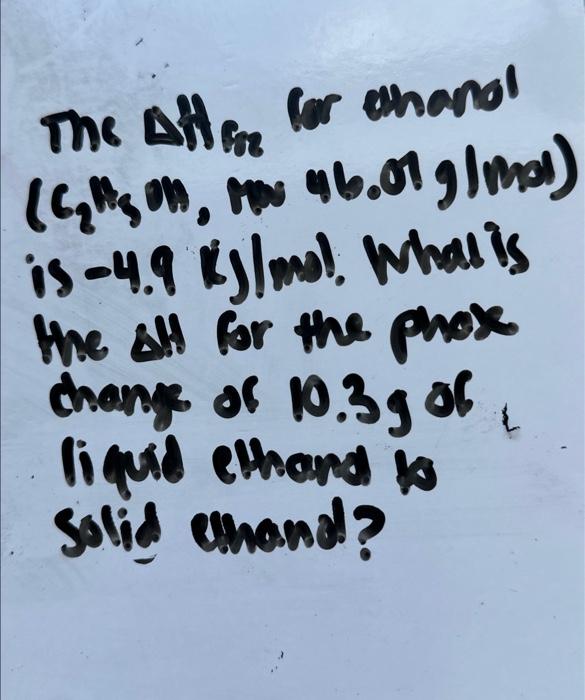 The ΔH frz for ethanol
(C₂H₅OH, MW 46.07 g/mol)
is -4.9 kJ/mol. What is
the ΔH for the phase
change of 10.3 g of
liquid ethanol to
solid ethanol?